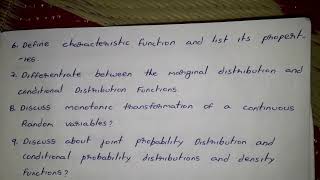 6. Define characteristic function and list its propert-
-ies.
7. Differentiate between the marginal distribution and
conditional Distribution Functions.
8. Discuss monotonic transformation of a continuous
Random variables?
9. Discuss about joint probability Distribution and
conditional probability distributions and density
Functions?